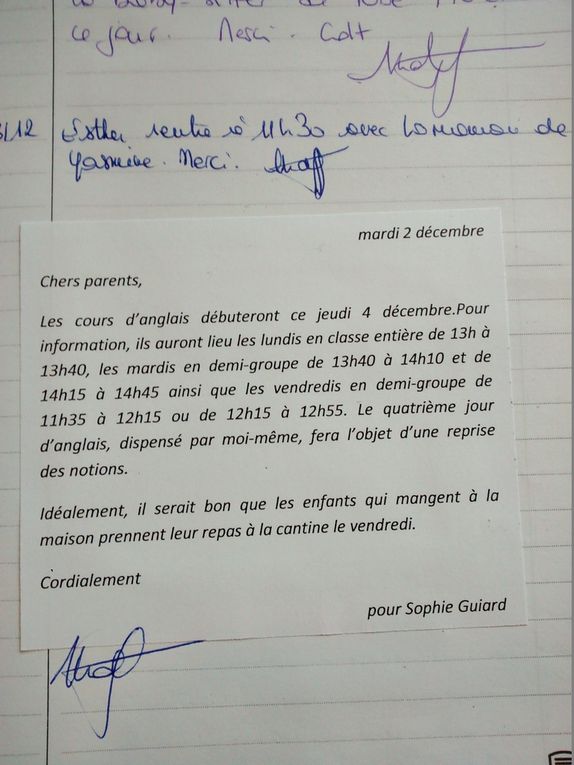 ce jour. Merci. Cdt
12 Esther rentre à 11h30 avec la maman de
Yasmine. Merci.
mardi 2 décembre
Chers parents,
Les cours d'anglais débuteront ce jeudi 4 décembre.Pour
information, ils auront lieu les lundis en classe entière de 13h à
13h40, les mardis en demi-groupe de 13h40 à 14h10 et de
14h15 à 14h45 ainsi que les vendredis en demi-groupe de
11h35 à 12h15 ou de 12h15 à 12h55. Le quatrième jour
d'anglais, dispensé par moi-même, fera l'objet d'une reprise
des notions.
Idéalement, il serait bon que les enfants qui mangent à la
maison prennent leur repas à la cantine le vendredi.
Cordialement
pour Sophie Guiard